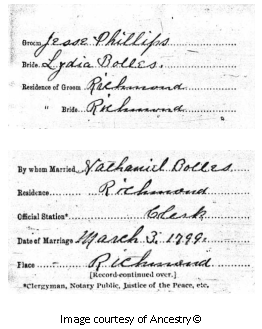 Groom Jesse Phillips
Bride Lydia Bolles.
Residence of Groom Richmond
" Bride Richmond
By whom Married, Nathaniel Bolles
Residence Richmond
Official Station* Clerk
Date of Marriage March 3, 1799.
Place Richmond
[Record continued over.]
*Clergyman, Notary Public, Justice of the Peace, etc.
Image courtesy of Ancestry©